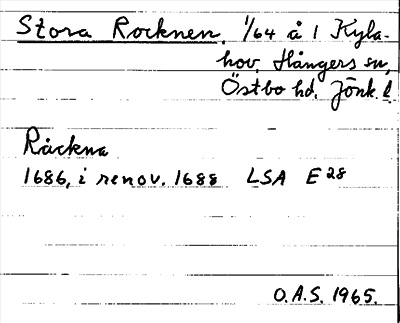 Stora Rocknen, 1/64 å 1 Kyla-
hov, Hångers sn,
Östbo hd. Jönk. l.
Råckna
1686, i renov. 1688 LSA E 28
O.A.S. 1965.